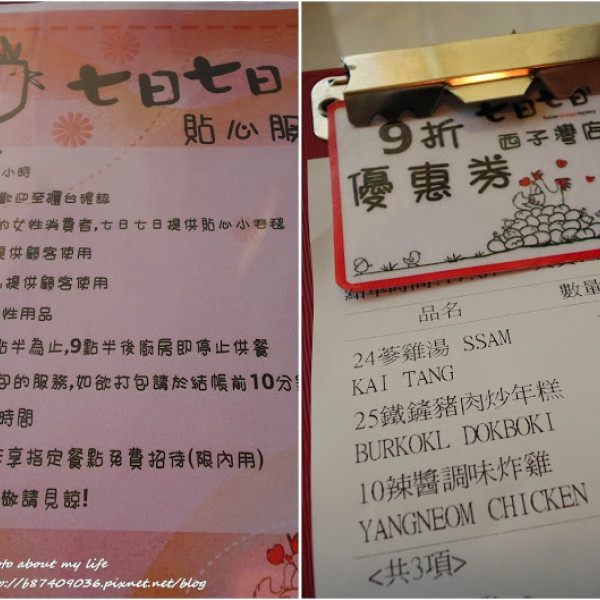 七日七日
貼心服
小時
歡迎至櫃台確認
的女性消費者,七日七日提供貼心小毛毯
提供顧客使用
提供顧客使用
性用品
點半為止,9點半後廚房即停止供餐
包的服務,如欲打包請於結帳前10分
時間
享指定餐點免費招待(限內用)
敬請見諒!
oto about my life
http://b87409036.pixnet.net/blog
七日七日
9折 西子灣店
優惠券
品名 數量
24蔘雞湯 SSAM
KAI TANG
25鐵鏟豬肉炒年糕
BURKOKL DOKBOKI
10辣醬調味炸雞
YANGNEOM CHICKEN
<共3項>